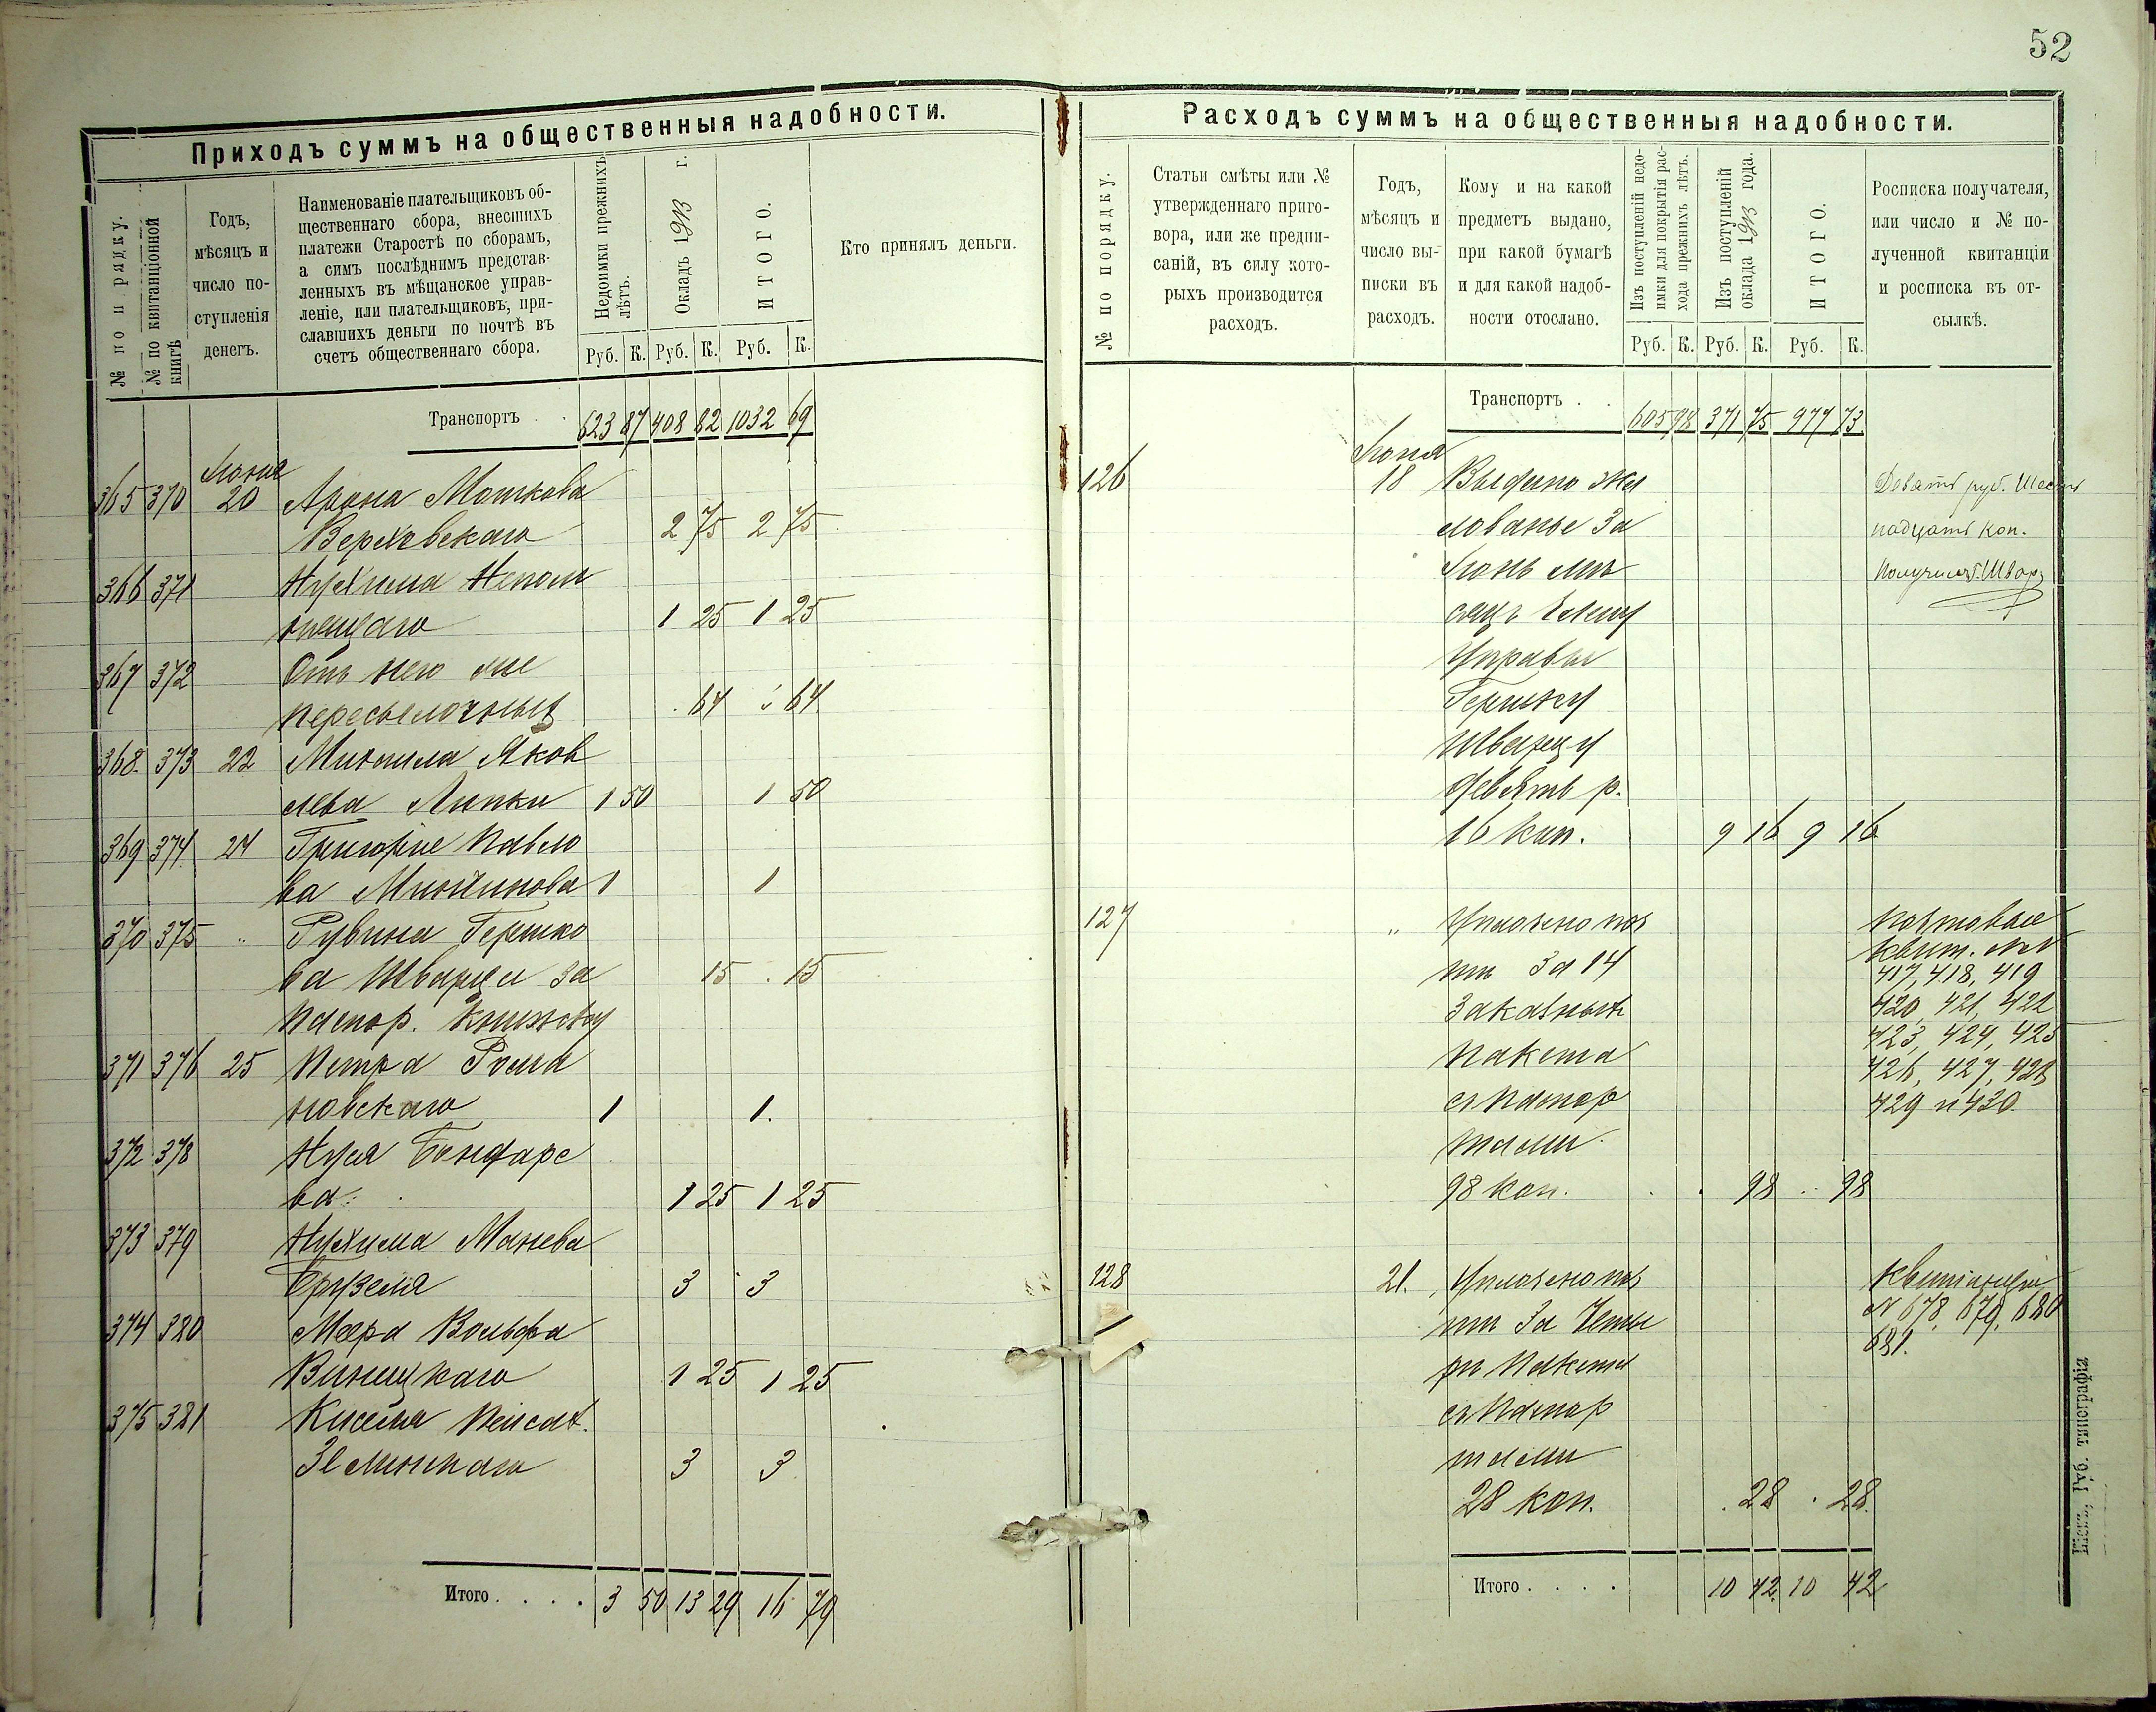 52
Приходъ суммъ на общественныя надобности.
№ по порядку.
№ по квитанціонной книгѣ
Годъ, мѣсяцъ и число поступленія денегъ.
Наименованіе плательщиковъ об-
щественнаго сбора, внесшихъ
платежи Старостѣ по сборамъ,
а симъ послѣднимъ представ-
ленныхъ въ мѣщанское управ-
леніе, или плательщиковъ, при-
славшихъ деньги по почтѣ въ
счетъ общественнаго сбора.
Недоимки прежнихъ лѣтъ.
Окладъ 1913 г.
ИТОГО.
Кто принялъ деньги.
Руб. К. Руб. К. Руб. К.
Транспортъ 623 87 408 82 1032 69
Іюня
365 370 20 Арона Мошкова
Верховскаго 2 75 2 75
366 371 Нухима Непом
нящаго 1 25 1 25
367 372 Отъ него же
пересылочныхъ 64 64
368 373 22 Михаила Яков
лева Липки 1 50 1 50
369 374 24 Григорія Павло
ва 1 1
370 375 " Рувина Гершко
ва Шварца за 15 15
паспор. книжку
371 376 25 Петра Рома
новскаго 1 1
372 378 Нуся Бондаре
ва 1 25 1 25
373 379 Нухима Манева
3 3
374 380 Меера Вольфа
Виницкаго 1 25 1 25
375 381 Киселя Пейсах.
3 3
Итого . . . . 3 50 13 29 16 79
Расходъ суммъ на общественныя надобности.
№ по порядку.
Статьи смѣты или №
утвержденнаго приго-
вора, или же предпи-
саній, въ силу кото-
рыхъ производится
расходъ.
Годъ,
мѣсяцъ и
число вы-
писки въ
расходъ.
Кому и на какой
предметъ выдано,
при какой бумагѣ
и для какой надоб-
ности отослано.
Изъ поступленій недо-
имки для покрытія рас-
хода прежнихъ лѣтъ.
Изъ поступленій
оклада 1913 года.
ИТОГО.
Росписка получателя,
или число и № по-
лученной квитанціи
и росписка въ от-
сылкѣ.
Руб. К. Руб. К. Руб. К.
Транспортъ . . 605 98 371 75 977 73
Іюня
126 18 Выдано жа Девять руб. Шест
лованье за надцать коп.
Іюнь мѣ Получилъ Г. Шварц
сяцъ Члену
Управы
Гершку
Шварцу
девять р.
16 коп. 9 16 9 16
127 " Уплочено поч Почтовые
тѣ за 14 квит. №№
заказныхъ 417, 418, 419
пакета 420, 421, 422
съ паспор 423, 424, 425
тами 426, 427, 428
98 коп. 98 98 429 и 430
128 21. Уплочено поч Квитанціи
тѣ за Четы № 678, 679, 680
ри пакета 681.
съ паспор
тами
28 коп. 28 28
Итого . . . . 10 42 10 42
Кіевъ, Губ. типографія